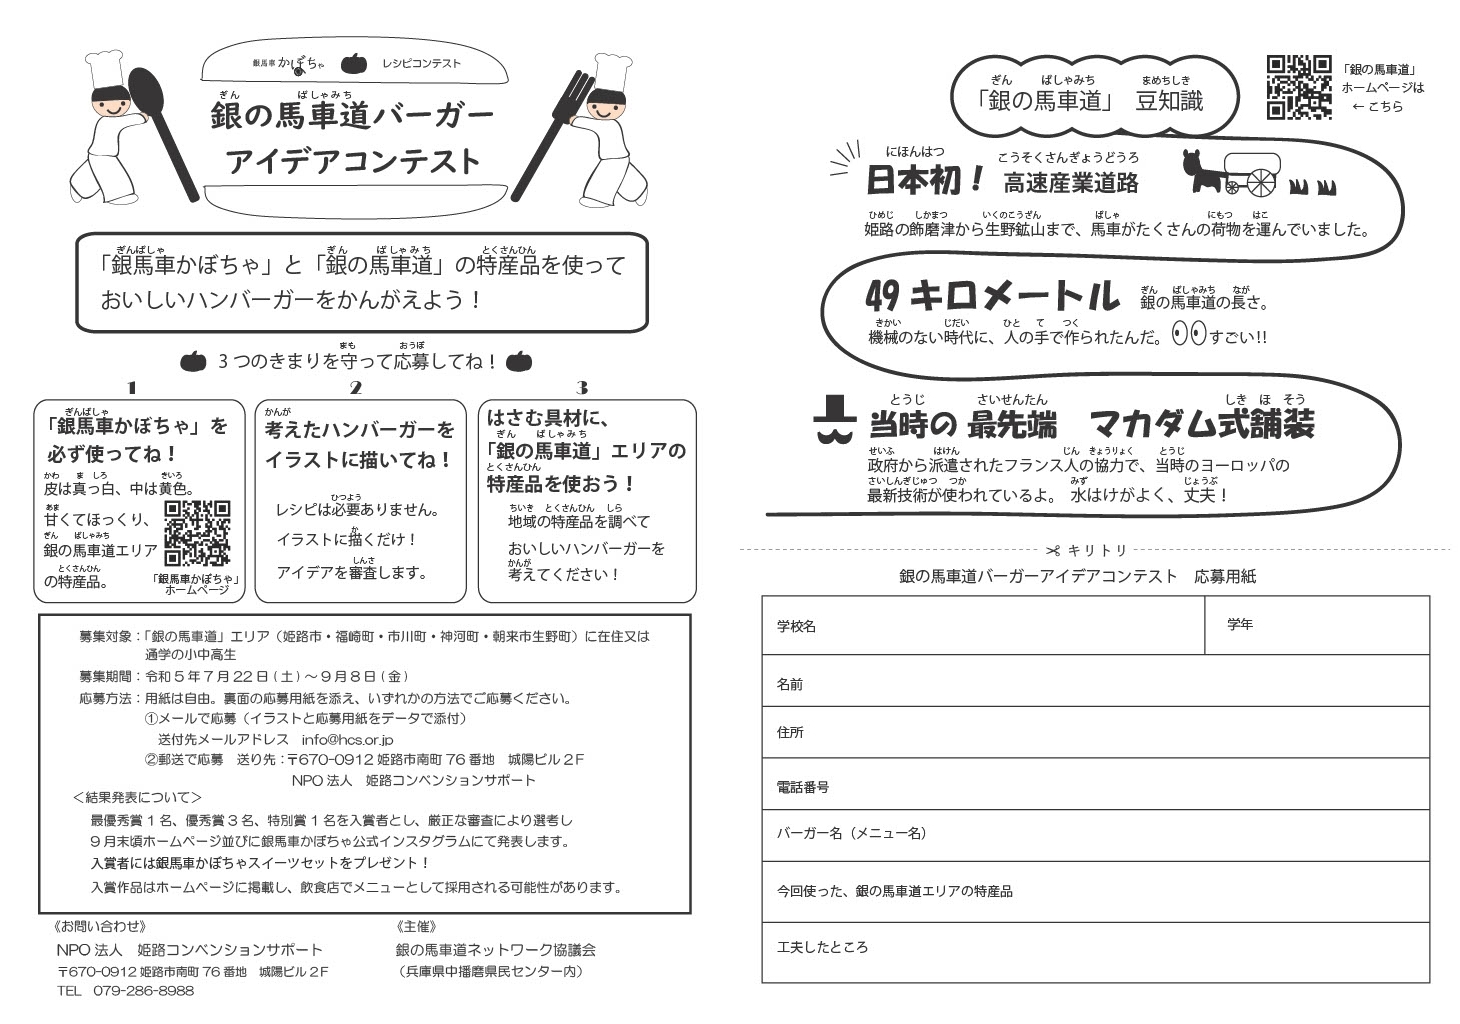 銀馬車かぼちゃ レシピコンテスト
ぎん ばしゃみち
銀の馬車道バーガー
アイデアコンテスト
ぎんばしゃ ぎん ばしゃみち とくさんひん
「銀馬車かぼちゃ」と「銀の馬車道」の特産品を使って
おいしいハンバーガーをかんがえよう！
まも おうぼ
3つのきまりを守って応募してね！
1
ぎんばしゃ
「銀馬車かぼちゃ」を
必ず使ってね！
かわ ま しろ きいろ
皮は真っ白、中は黄色。
あま
甘くてほっくり、
ぎん ばしゃみち
銀の馬車道エリア
とくさんひん
の特産品。
「銀馬車かぼちゃ」
ホームページ
2
かんが
考えたハンバーガーを
イラストに描いてね！
ひつよう
レシピは必要ありません。
か
イラストに描くだけ！
しんさ
アイデアを審査します。
3
はさむ具材に、
ぎん ばしゃみち
「銀の馬車道」エリアの
とくさんひん
特産品を使おう！
ちいき とくさんひん しら
地域の特産品を調べて
おいしいハンバーガーを
かんが
考えてください！
募集対象：「銀の馬車道」エリア（姫路市・福崎町・市川町・神河町・朝来市生野町）に在住又は
通学の小中高生
募集期間：令和５年７月22日(土)～９月８日(金)
応募方法：用紙は自由。裏面の応募用紙を添え、いずれかの方法でご応募ください。
①メールで応募（イラストと応募用紙をデータで添付）
送付先メールアドレス　info@hcs.or.jp
②郵送で応募　送り先：〒670-0912 姫路市南町76番地　城陽ビル２F
NPO法人　姫路コンベンションサポート
＜結果発表について＞
最優秀賞１名、優秀賞３名、特別賞１名を入賞者とし、厳正な審査により選考し
９月末頃ホームページ並びに銀馬車かぼちゃ公式インスタグラムにて発表します。
入賞者には銀馬車かぼちゃスイーツセットをプレゼント！
入賞作品はホームページに掲載し、飲食店でメニューとして採用される可能性があります。
《お問い合わせ》
NPO法人　姫路コンベンションサポート
〒670-0912 姫路市南町76番地　城陽ビル２F
TEL　079-286-8988
《主催》
銀の馬車道ネットワーク協議会
（兵庫県中播磨県民センター内）
ぎん ばしゃみち まめちしき
「銀の馬車道」 豆知識
「銀の馬車道」
ホームページは
←こちら
にほんはつ こうそくさんぎょうどうろ
日本初！ 高速産業道路
ひめじ しかまつ いくのこうざん ばしゃ にもつ はこ
姫路の飾磨津から生野鉱山まで、馬車がたくさんの荷物を運んでいました。
ぎん ばしゃみち なが
49キロメートル 銀の馬車道の長さ。
きかい じだい ひと て つく
機械のない時代に、人の手で作られたんだ。すごい!!
とうじ さいせんたん しき ほ そう
当時の 最先端　マカダム式舗装
せいふ はけん じん きょうりょく とうじ
政府から派遣されたフランス人の協力で、当時のヨーロッパの
さいしんぎじゅつ つか みず じょうぶ
最新技術が使われているよ。 水はけがよく、丈夫！
キリトリ
銀の馬車道バーガーアイデアコンテスト　応募用紙
学校名
学年
名前
住所
電話番号
バーガー名（メニュー名）
今回使った、銀の馬車道エリアの特産品
工夫したところ